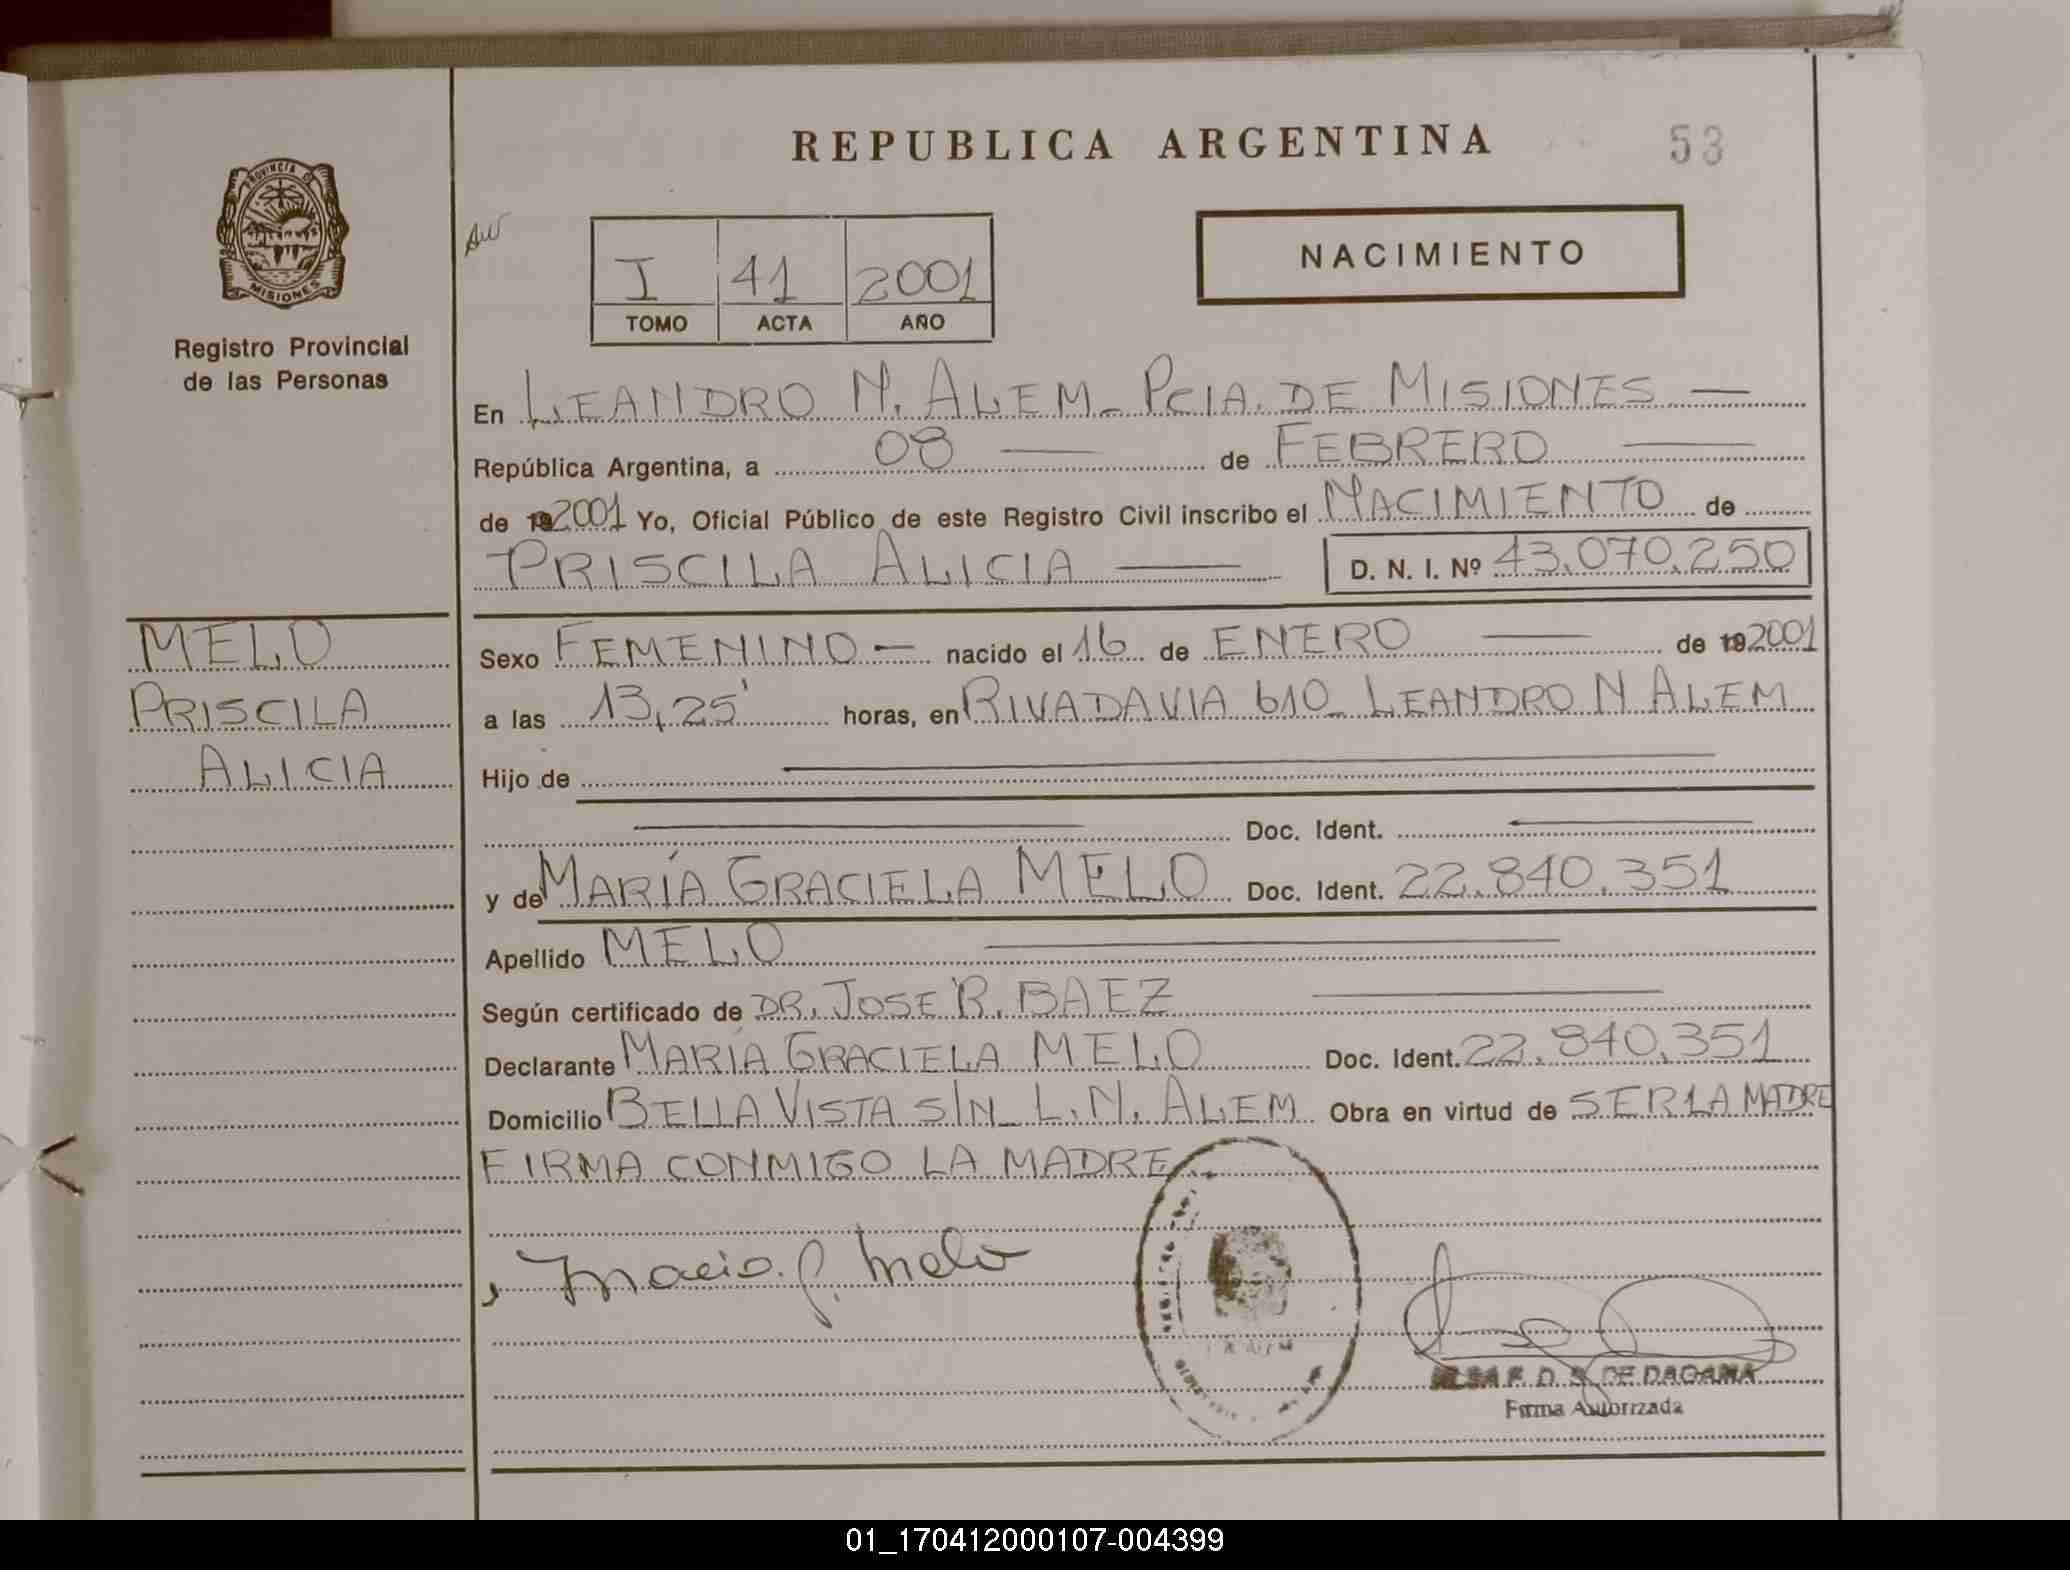 REPUBLICA ARGENTINA
53
PROVINCIA DE
MISIONES
Registro Provincial
de las Personas
NACIMIENTO
I 41 2001
TOMO ACTA AÑO
En LEANDRO N. ALEM - PCIA. DE MISIONES —
República Argentina, a 08 — de FEBRERO —
de 192001 Yo, Oficial Público de este Registro Civil inscribo el NACIMIENTO de
PRISCILA ALICIA — D. N. I. Nº 43.070.250
MELO
PRISCILA
ALICIA
Sexo FEMENINO — nacido el 16 de ENERO — de 192001
a las 13,25' horas, en RIVADAVIA 610 - LEANDRO N ALEM
Hijo de —
— Doc. Ident. —
y de MARÍA GRACIELA MELO Doc. Ident. 22.840.351
Apellido MELO —
Según certificado de DR. JOSE R. BAEZ —
Declarante MARÍA GRACIELA MELO Doc. Ident. 22.840.351
Domicilio BELLA VISTA S/N - L. N. ALEM Obra en virtud de SER LA MADRE
FIRMA CONMIGO LA MADRE
Maria. G. Melo
F. D. DE DAGAMA
Firma Autorizada
01_170412000107-004399